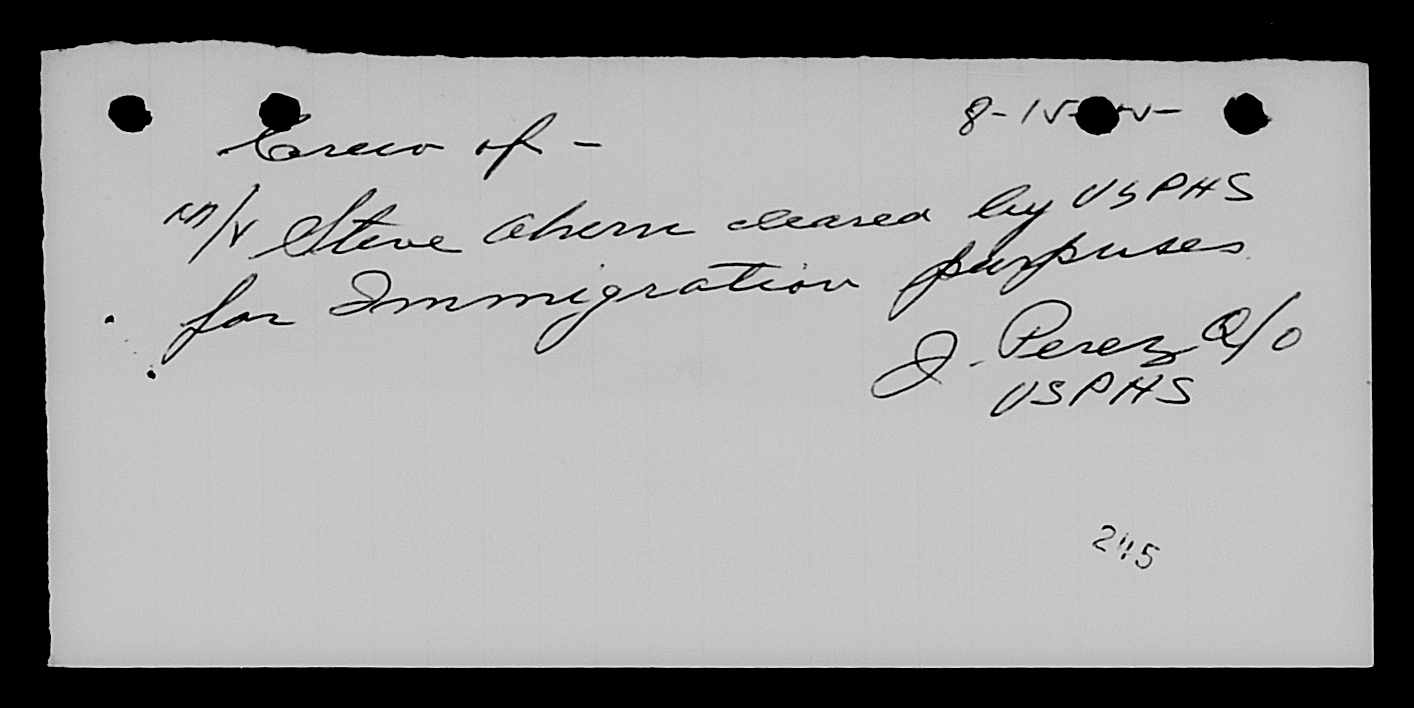 8-15-
Crew of -
M/V Steve Ahern cleared by USPHS
for Immigration purpuses
J. Perez Q/O
USPHS
245